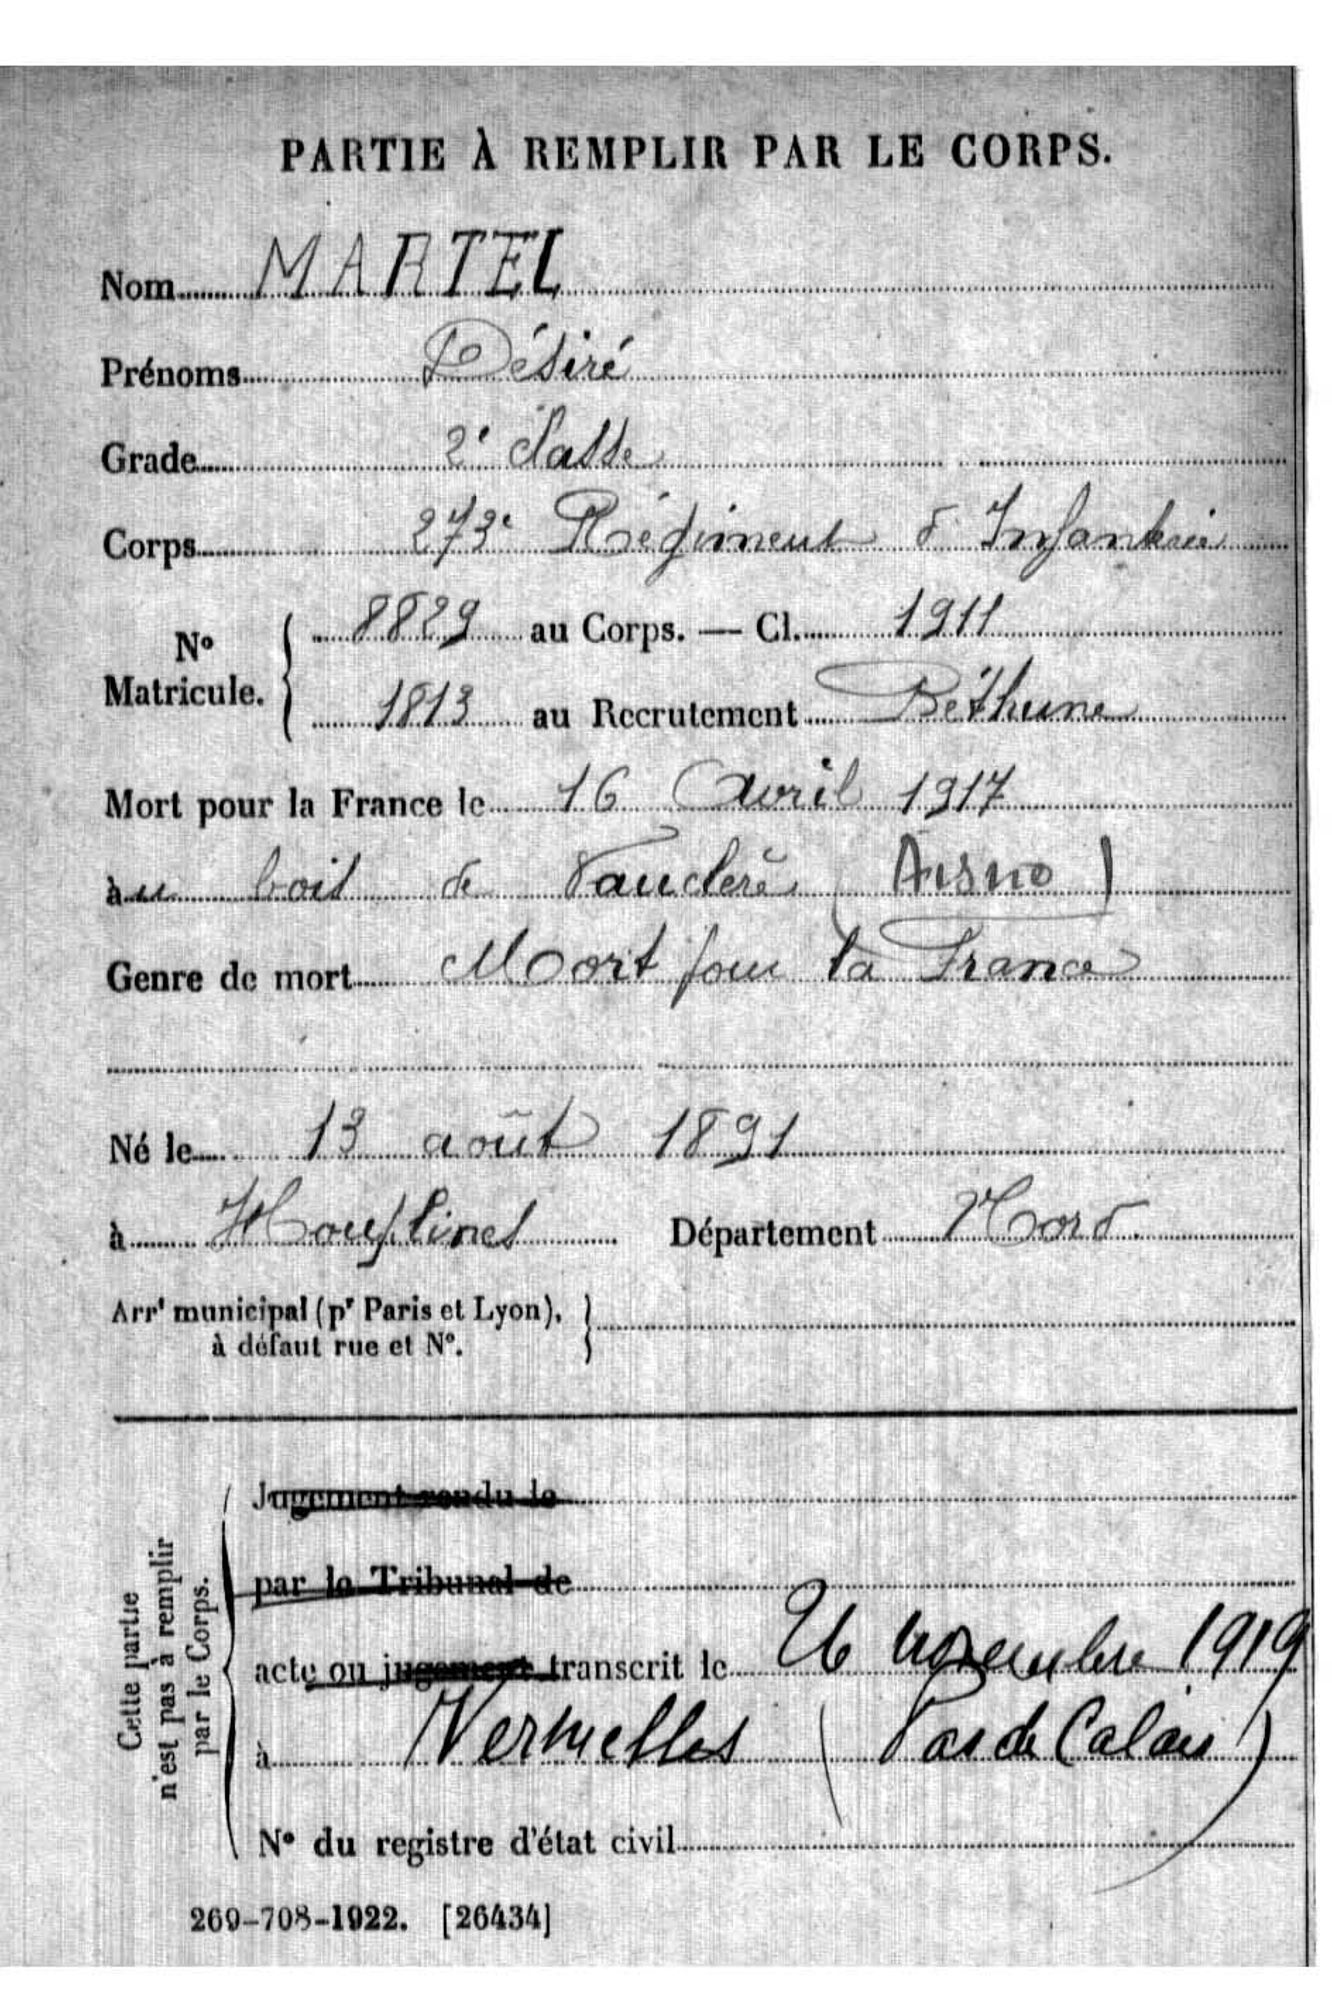 PARTIE À REMPLIR PAR LE CORPS.
Nom MARTEL
Prénoms Désiré
Grade 2e classe
Corps 273e Régiment d'Infanterie
No Matricule. 8829 au Corps. — Cl. 1911
1813 au Recrutement Béthune
Mort pour la France le 16 Avril 1917
au bois de Vaucleré (Aisne)
Genre de mort Mort pour la France
Né le 13 août 1891
à Houplines Département Nord
Arrt municipal (pr Paris et Lyon),
à défaut rue et No.
Cette partie
n'est pas à remplir
par le Corps.
Jugement rendu le
par le Tribunal de
acte ou jugement transcrit le 26 novembre 1919
à Vermelles (Pas de Calais)
No du registre d'état civil
269-708-1922. [26434]